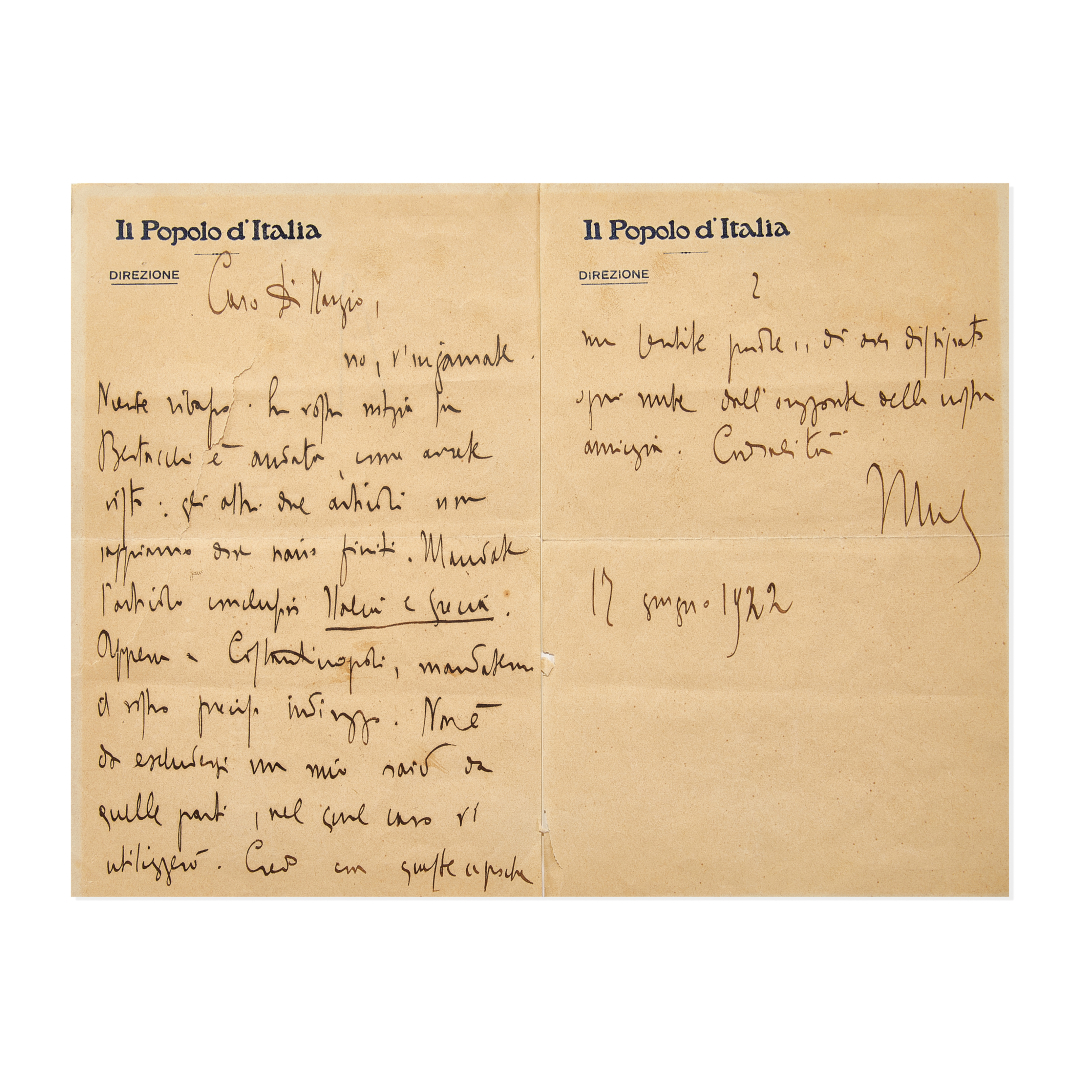 Il Popolo d'Italia
DIREZIONE
Caro Di Marzio,
no, v'ingannate.
Niente ribasso. La vostra notizia su
Bertacchi è andata, come avrete
visto: gli altri due articoli non
sappiamo dove siano finiti. Mandate
l'articolo conclusivo Italia e Grecia.
Appena a Costantinopoli, mandatemi
il vostro preciso indirizzo. Non è
da escludersi un mio raid da
quelle parti, nel qual caso vi
utilizzerò. Credo con queste
Il Popolo d'Italia
DIREZIONE
2
di aver dissipato
ogni nube dall'orizzonte della nostra
amicizia. Cordialità
17 giugno 1922